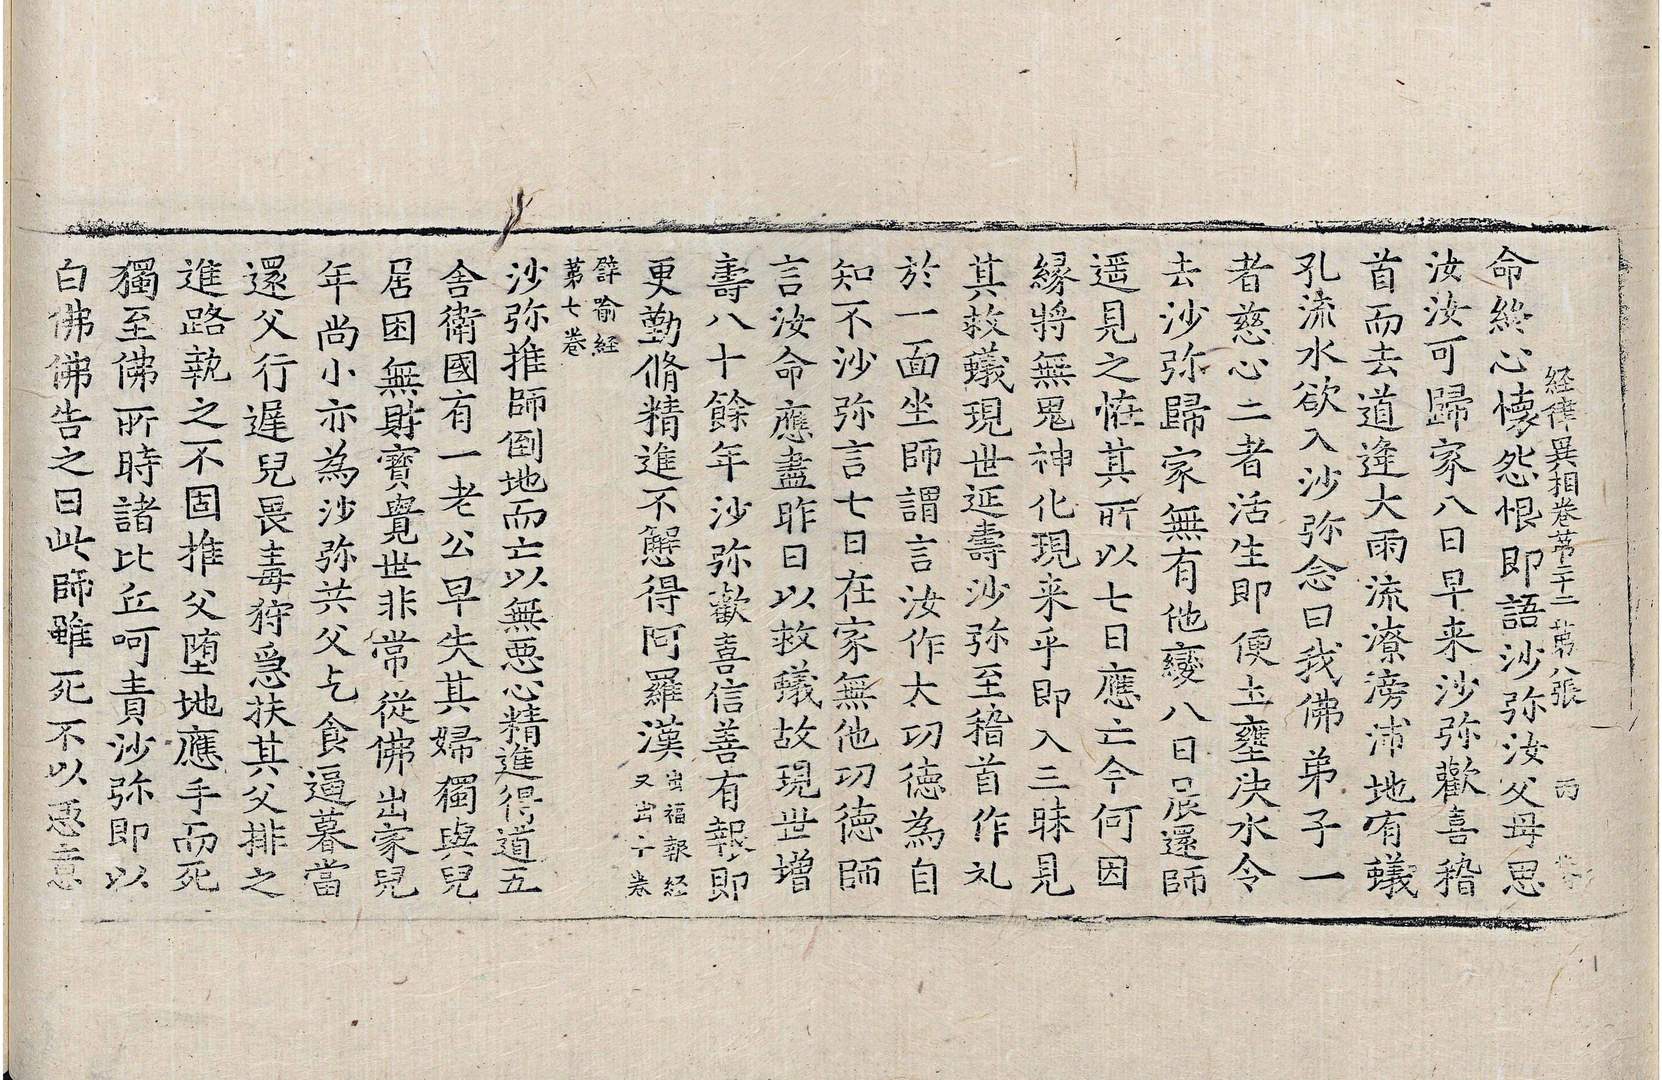 経律異相卷苐二十二 苐八張 丙
命終心懐怨恨即語沙弥汝父母思
汝汝可歸家八日早来沙弥歡喜稽
首而去道逢大雨流潦滂沛地有蟻
孔流水欲入沙弥念曰我佛弟子一
者慈心二者活生即便土壅决水令
去沙弥歸家無有他變八日晨還師
遥見之恠其所以七日應亡今何因
縁將無鬼神化現来乎即入三昧見
其救蟻現世延壽沙弥至稽首作礼
於一面坐師謂言汝作大功德為自
知不沙弥言七日在家無他功德師
言汝命應盡昨日以救蟻故現世增
壽八十餘年沙弥歡喜信善有報即
更勤脩精進不懈得阿羅漢 出福報経
又出 卷
譬喻経
苐七卷
沙弥推師倒地而亡以無惡心精進得道五
舎衛國有一老公早失其婦獨與兒
居困無財寳覺世非常從佛出家兒
年尚小亦為沙弥共父乞食逼暮當
還父行遅兒畏毒狩急扶其父排之
進路執之不固推父堕地應手而死
獨至佛所時諸比丘呵責沙弥即以
白佛佛告之曰此師雖死不以惡意